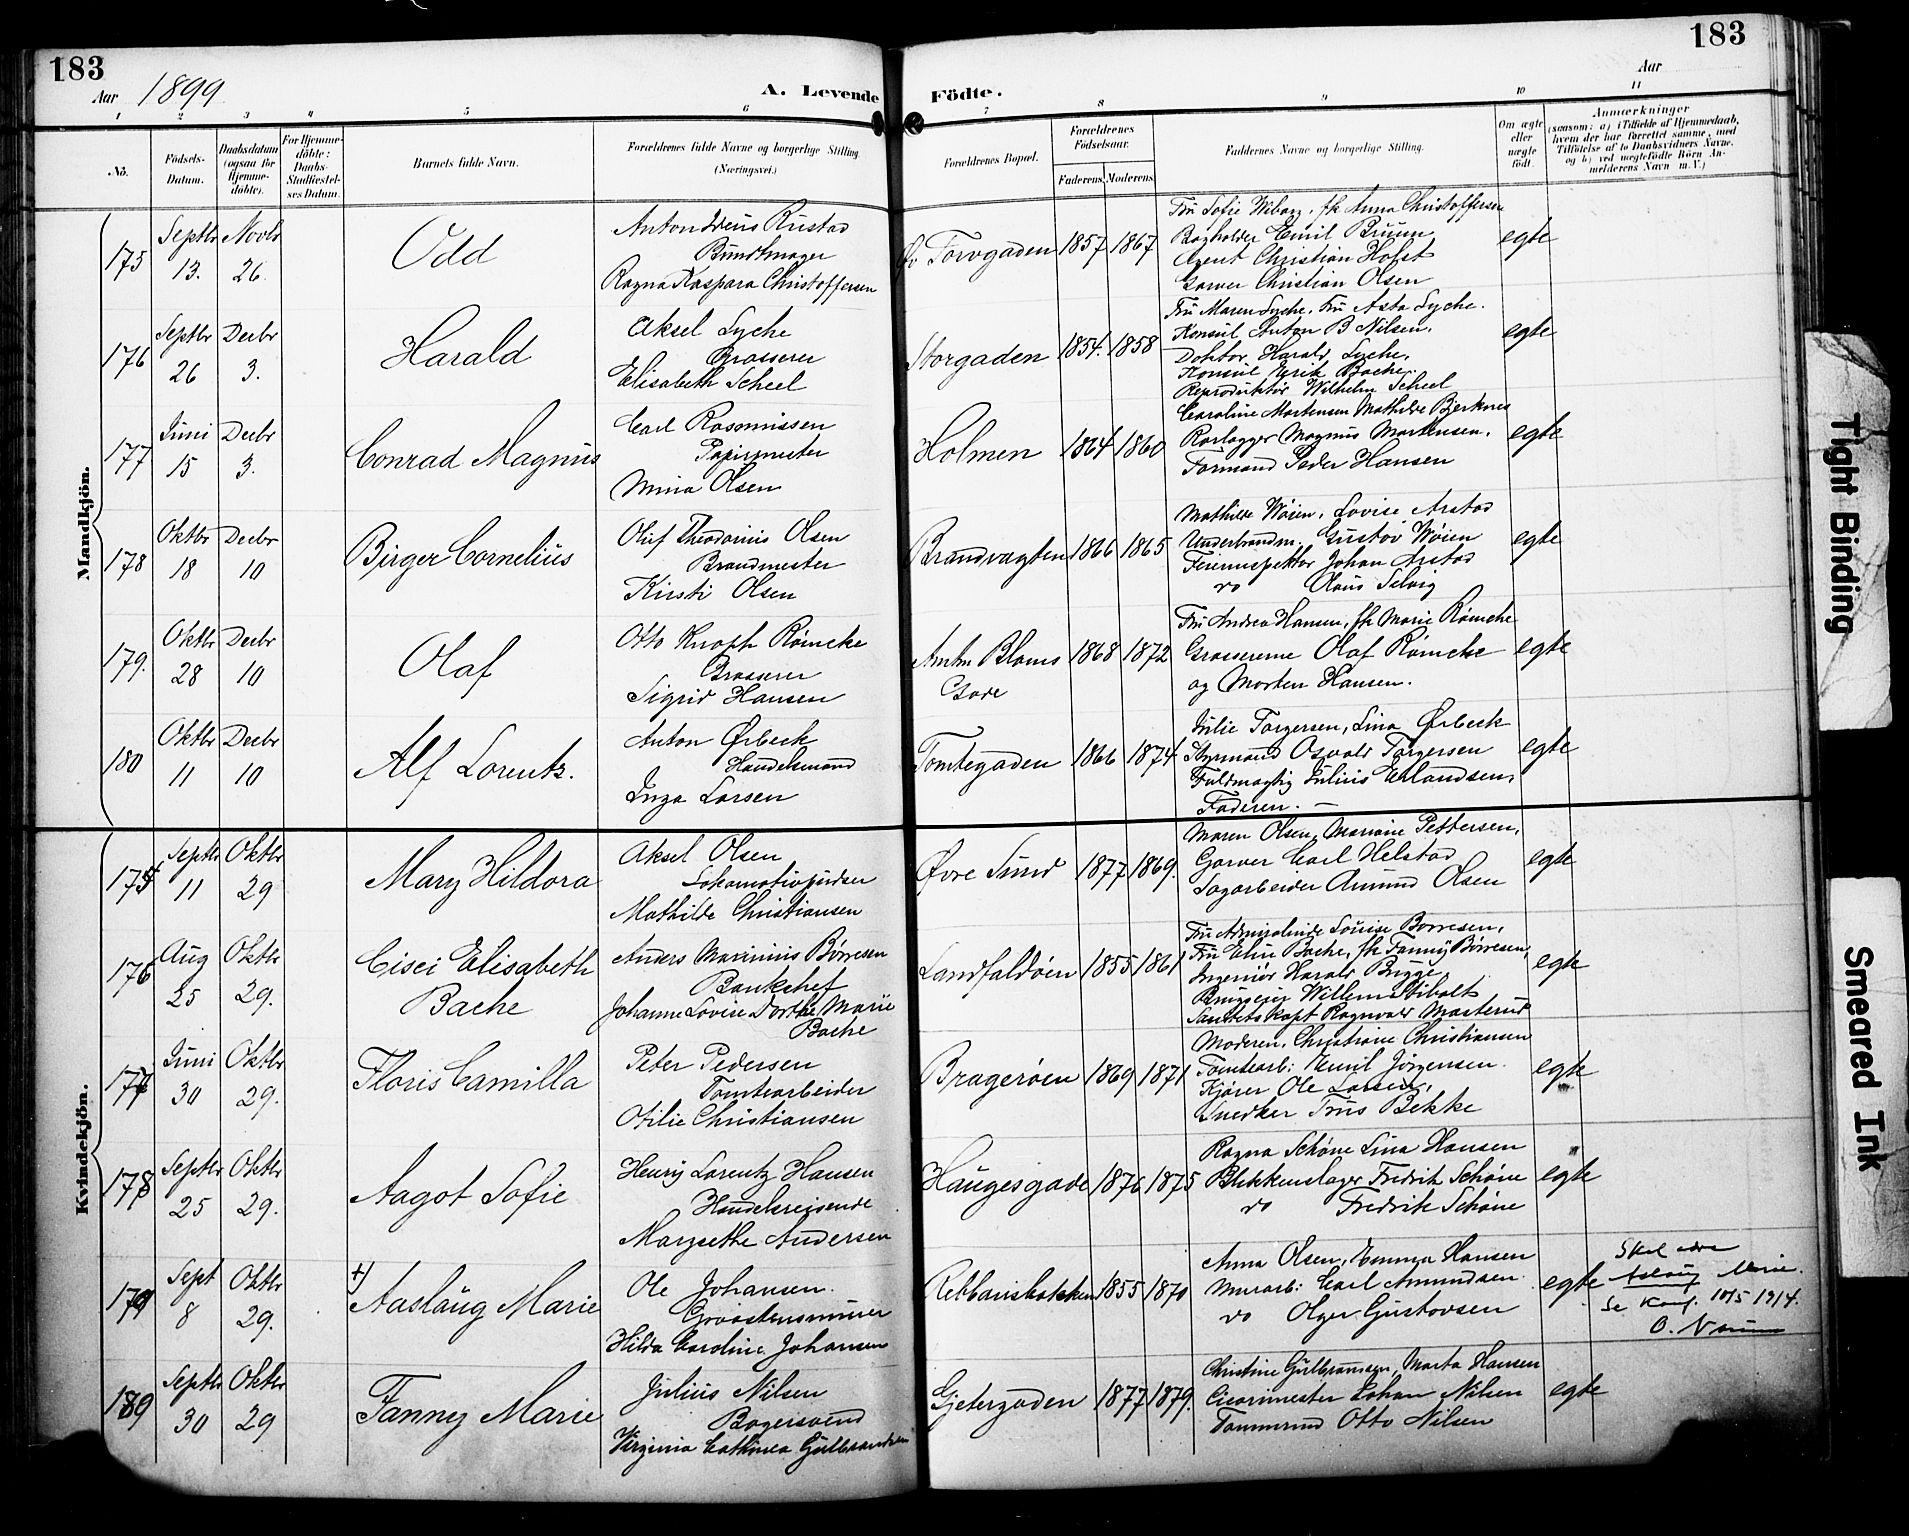 183
183
Aar 1899
A. Levende Födte.
Aar
1 2 3 4 5 6 7 8 9 10 11
No.
Födsels-Datum.
Daabsdatum (ogsaa for Hjemme-döbte).
For Hjemme-döbte: Daabs-Stadfæstel-ses Datum.
Barnets fulde Navn.
Forældrenes fulde Navne og borgerlige Stilling (Næringsvei.)
Forældrenes Bopæl.
Forældrenes Födselsaar.
Faderens. Moderens.
Faddernes Navne og borgerlige Stilling.
Om ægte eller uægte födt.
Anmærkninger
(saasom: a) i Tilfælde af Hjemmedaab,
hvem der har forrettet samme, med
Tilföielse af to Daabsvidners Navne,
og b) ved uægtefödte Börn An-
melderens Navn m. V.)
Mandkjön.
175
Septbr 13.
Novbr 26.
Odd
Anton Irens Rustad
Bundtmager
Ragna Kaspara Christoffersen
Øv Torvgaden
1857 1867
Fru Sofie Wiborg, frk Anna Christoffersen
Bogholder Emil Bruun
Agent Christian Holst
Garver Christian Olsen
egte
176
Septbr 26
Decbr 3.
Harald
Aksel Lyche
Grosserer
Elisabeth Scheel
Storgaden
1854. 1858
Fru Maren Lyche, Fru Asta Lyche.
Konsul Anton B Nilsen.
Doktor Harald Lyche.
Konsul Kerik Bache
Wilhelm Scheel
egte
177
Juni 15
Decbr 3.
Conrad Magnus
Carl Rasmussen
Papirmester
Mina Olsen
Holmen
1864 1860
Caroline Mortensen Mathilde Bjerknes
Rorlægger Magnus Mortensen.
Formand Peder Hansen
egte
178
Oktbr 18
Decbr 10
Birger Cornelius
Oluf Theodorius Olsen
Brandmester
Kirsti Olsen
Brandvagten
1866 1865
Mathilde Wøien, Lovise Arstad
Underbrandm. Gustav Wøien
Feierinspektor Johan Arstad
do Olaus Selvig
egte
179.
Oktbr 28
Decbr 10
Olaf
Otto Knoph Rømcke
Grosserer
Sigrid Hansen
Amtm Bloms
Gade
1868 1872
Fru Andrea Hansen, frk Marie Rømcke
Grossererne Olaf Rømcke
og Morten Hansen.
egte
180
Oktbr 11
Decbr 10
Alf Lorentz.
Anton Ørbeck
Handelsmand
Inga Larsen
Tomtegaden
1866 1874
Julie Torgersen, Lina Ørbeck
Styrmand Osvald Torgersen
Fuldmægtig Julius Erlandsen,
Faderen. —
egte
Kvindekjön.
175
Septbr 11
Oktbr 29
Mary Hildora
Aksel Olsen
Lokomotivpudser
Mathilde Christiansen
Øvre Sund
1877 1869.
Maren Olsen, Mariane Pettersen,
Garver Carl Helstad
Sagarbeider Amund Olsen
egte
176
Aug 25
Oktbr 29.
Cisci Elisabeth
Bache
Anders Marinius Børresen
Bankchef
Johanne Lovise Dorthe Marie
Bache
Landfaldøen
1855 1861
Fru Admiralinde Louise Børresen,
Fru Elise Bache, frk Fanny Børresen,
Ingeniør Harald Brigge
Brugseier Willem
Ragnvald Masterud
egte
177
Juni 30
Oktbr 29.
Floris Camilla
Peter Pedersen
Tomtearbeider
Otilie Christiansen
Bragerøen
1869 1871
Moderen, Christiane Christiansen
Tomtearb: Emil Jørgensen
Kjører Ole Larsen,
Snedker Trus Bekke
egte
178
Septbr 25
Oktbr 29.
Aagot Sofie
Henrij Lorentz Hansen
Handelsreisende
Margrethe Andersen
Haugesgade
1876 1875
Ragna Schøne Lina Hansen
Blikkenslager Fredrik Schøne
do Fredrik Schøne
egte
179
Sept 8
Oktbr 29.
+) Aaslaug Marie
Ole Johansen.
Graastensmurer
Hilda Caroline Johansen
Rebbansbakken
1855 1870
Anna Olsen, Emma Hansen
Murarb: Carl Amundsen
do Olger Gustavsen
egte
Skal være
Aslaug Marie.
Se Konf. 10/5 1914.
180
Septbr 30
Oktbr 29
Fanny Marie
Julius Nilsen
Bagersvend
Virginia Cathinca Gulbrandsen
Gjetergaden
1877 1879.
Christine Gulbransen, Marta Hansen
Cicorimester Johan Nilsen
Tømmermd Otto Nilsen
egte
Tight Binding
Smeared Ink